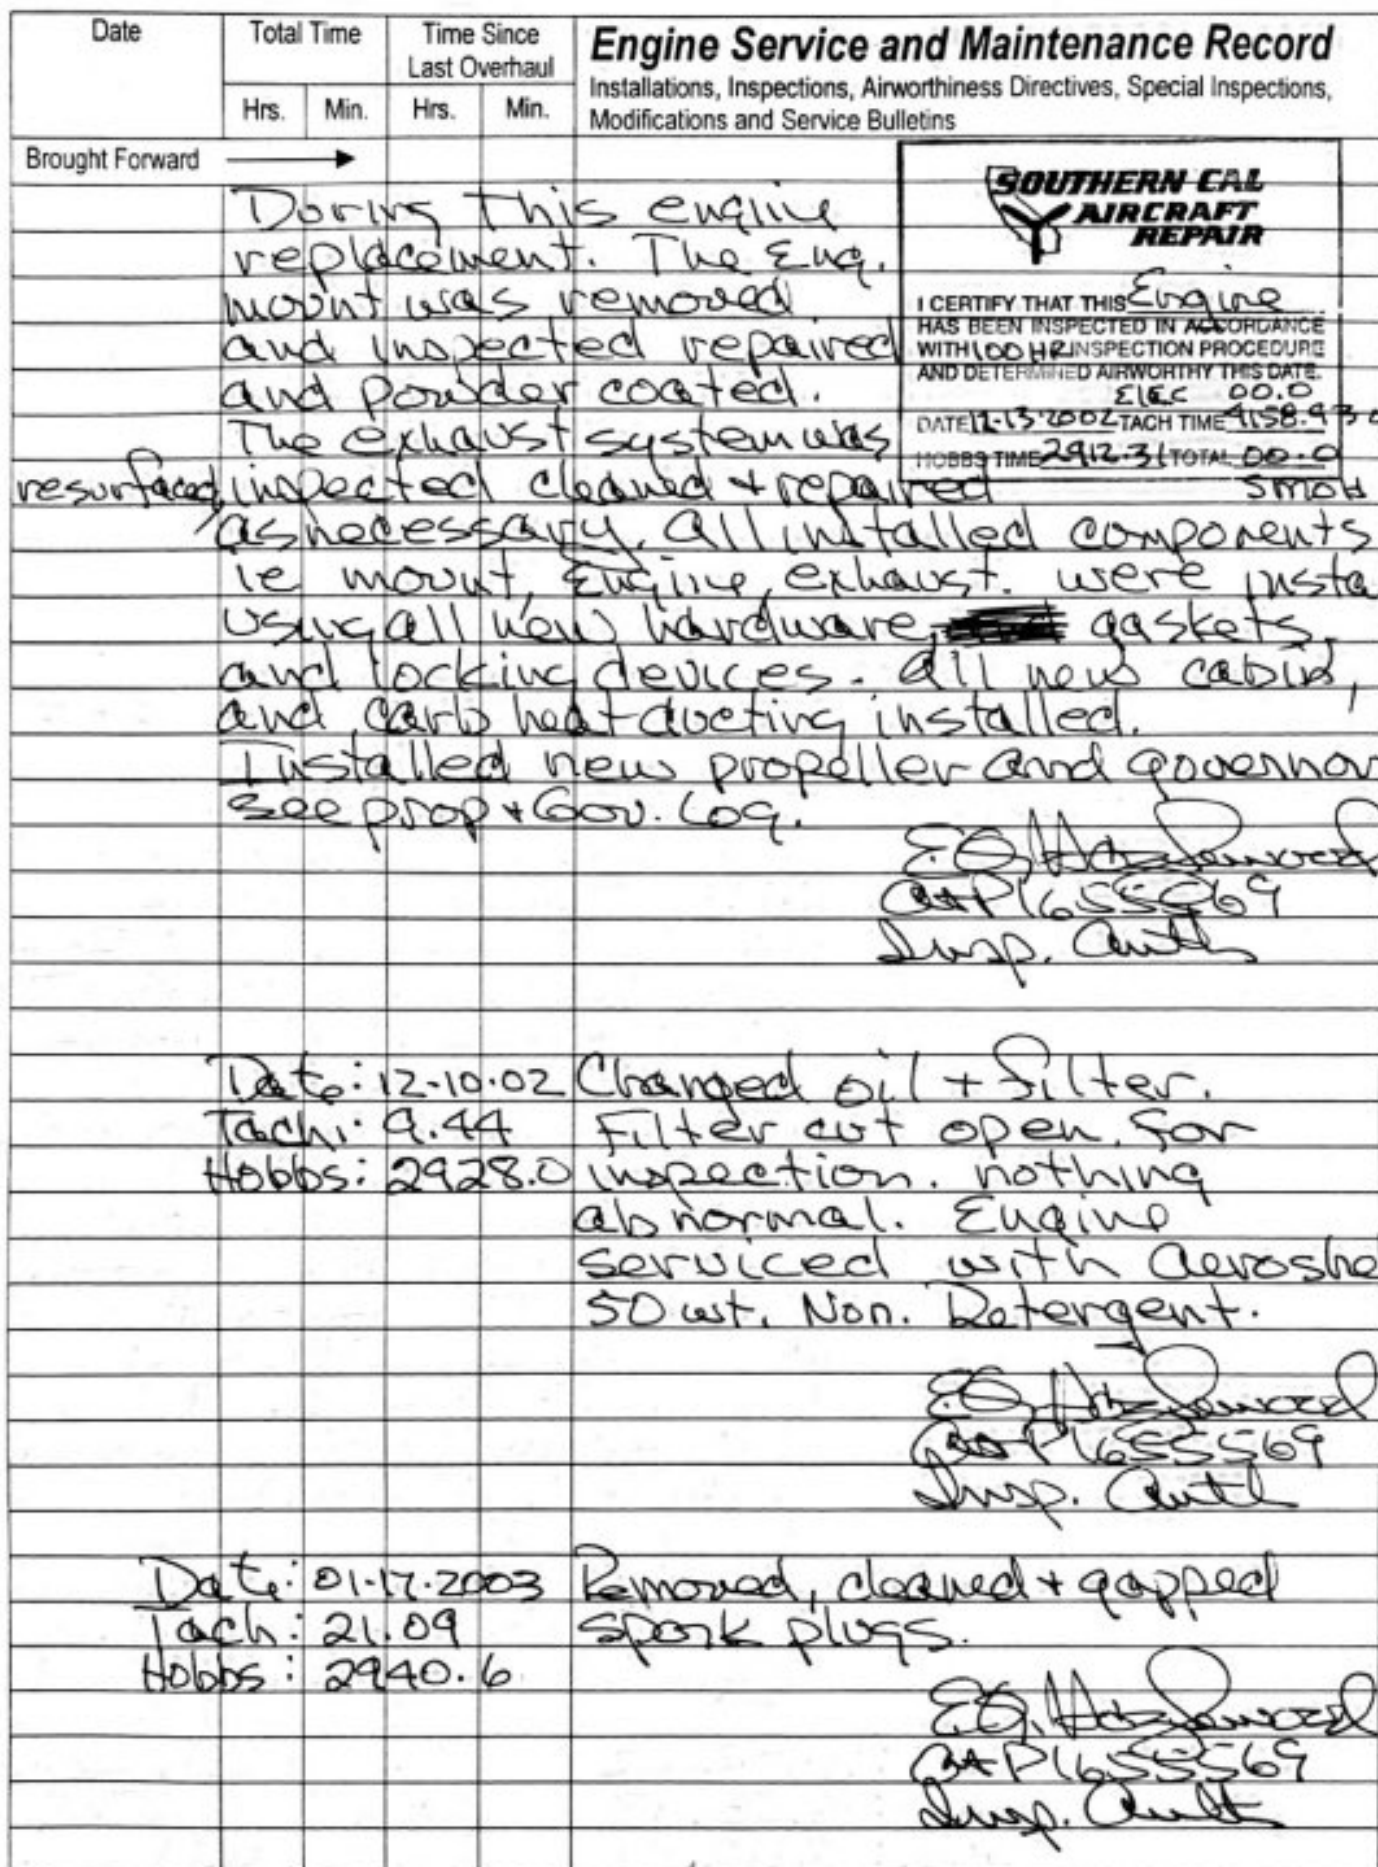 Date
Total Time
Time Since
Last Overhaul
Hrs. Min. Hrs. Min.
Engine Service and Maintenance Record
Installations, Inspections, Airworthiness Directives, Special Inspections,
Modifications and Service Bulletins
Brought Forward
SOUTHERN CAL
AIRCRAFT
REPAIR
I CERTIFY THAT THIS Engine
HAS BEEN INSPECTED IN ACCORDANCE
WITH 100 HR INSPECTION PROCEDURE
AND DETERMINED AIRWORTHY THIS DATE.
Elec 00.0
DATE 12-13-2002 TACH TIME 4158.93
HOBBS TIME 2912.31 TOTAL 00.0
SMOH
During This engine
replacement. The Eng.
mount was removed
and inspected repaired
and powder coated.
The exhaust system was
resurfaced, inspected cleaned + repaired
as necessary. All installed components
ie mount, Engine, exhaust. were insta
using all new hardware, gaskets,
and locking devices. All new cabin,
and carb heat ducting installed.
Installed new propeller and governor
see prop + Gov. Log.
E.G. Hazelwood
A+P 1655569
Insp. Auth
Date: 12-10-02 Changed oil + filter.
Tach: 9.44 Filter cut open for
Hobbs: 2928.0 inspection. nothing
abnormal. Engine
serviced with Aeroshe
50 wt. Non. Detergent.
E.G. Hazelwood
A+P 1655569
Insp. Auth
Date: 01-17-2003 Removed, cleaned + gapped
Tach: 21.09 spark plugs.
Hobbs: 2940.6
E.G. Hazelwood
A+P 1655569
Insp. Auth